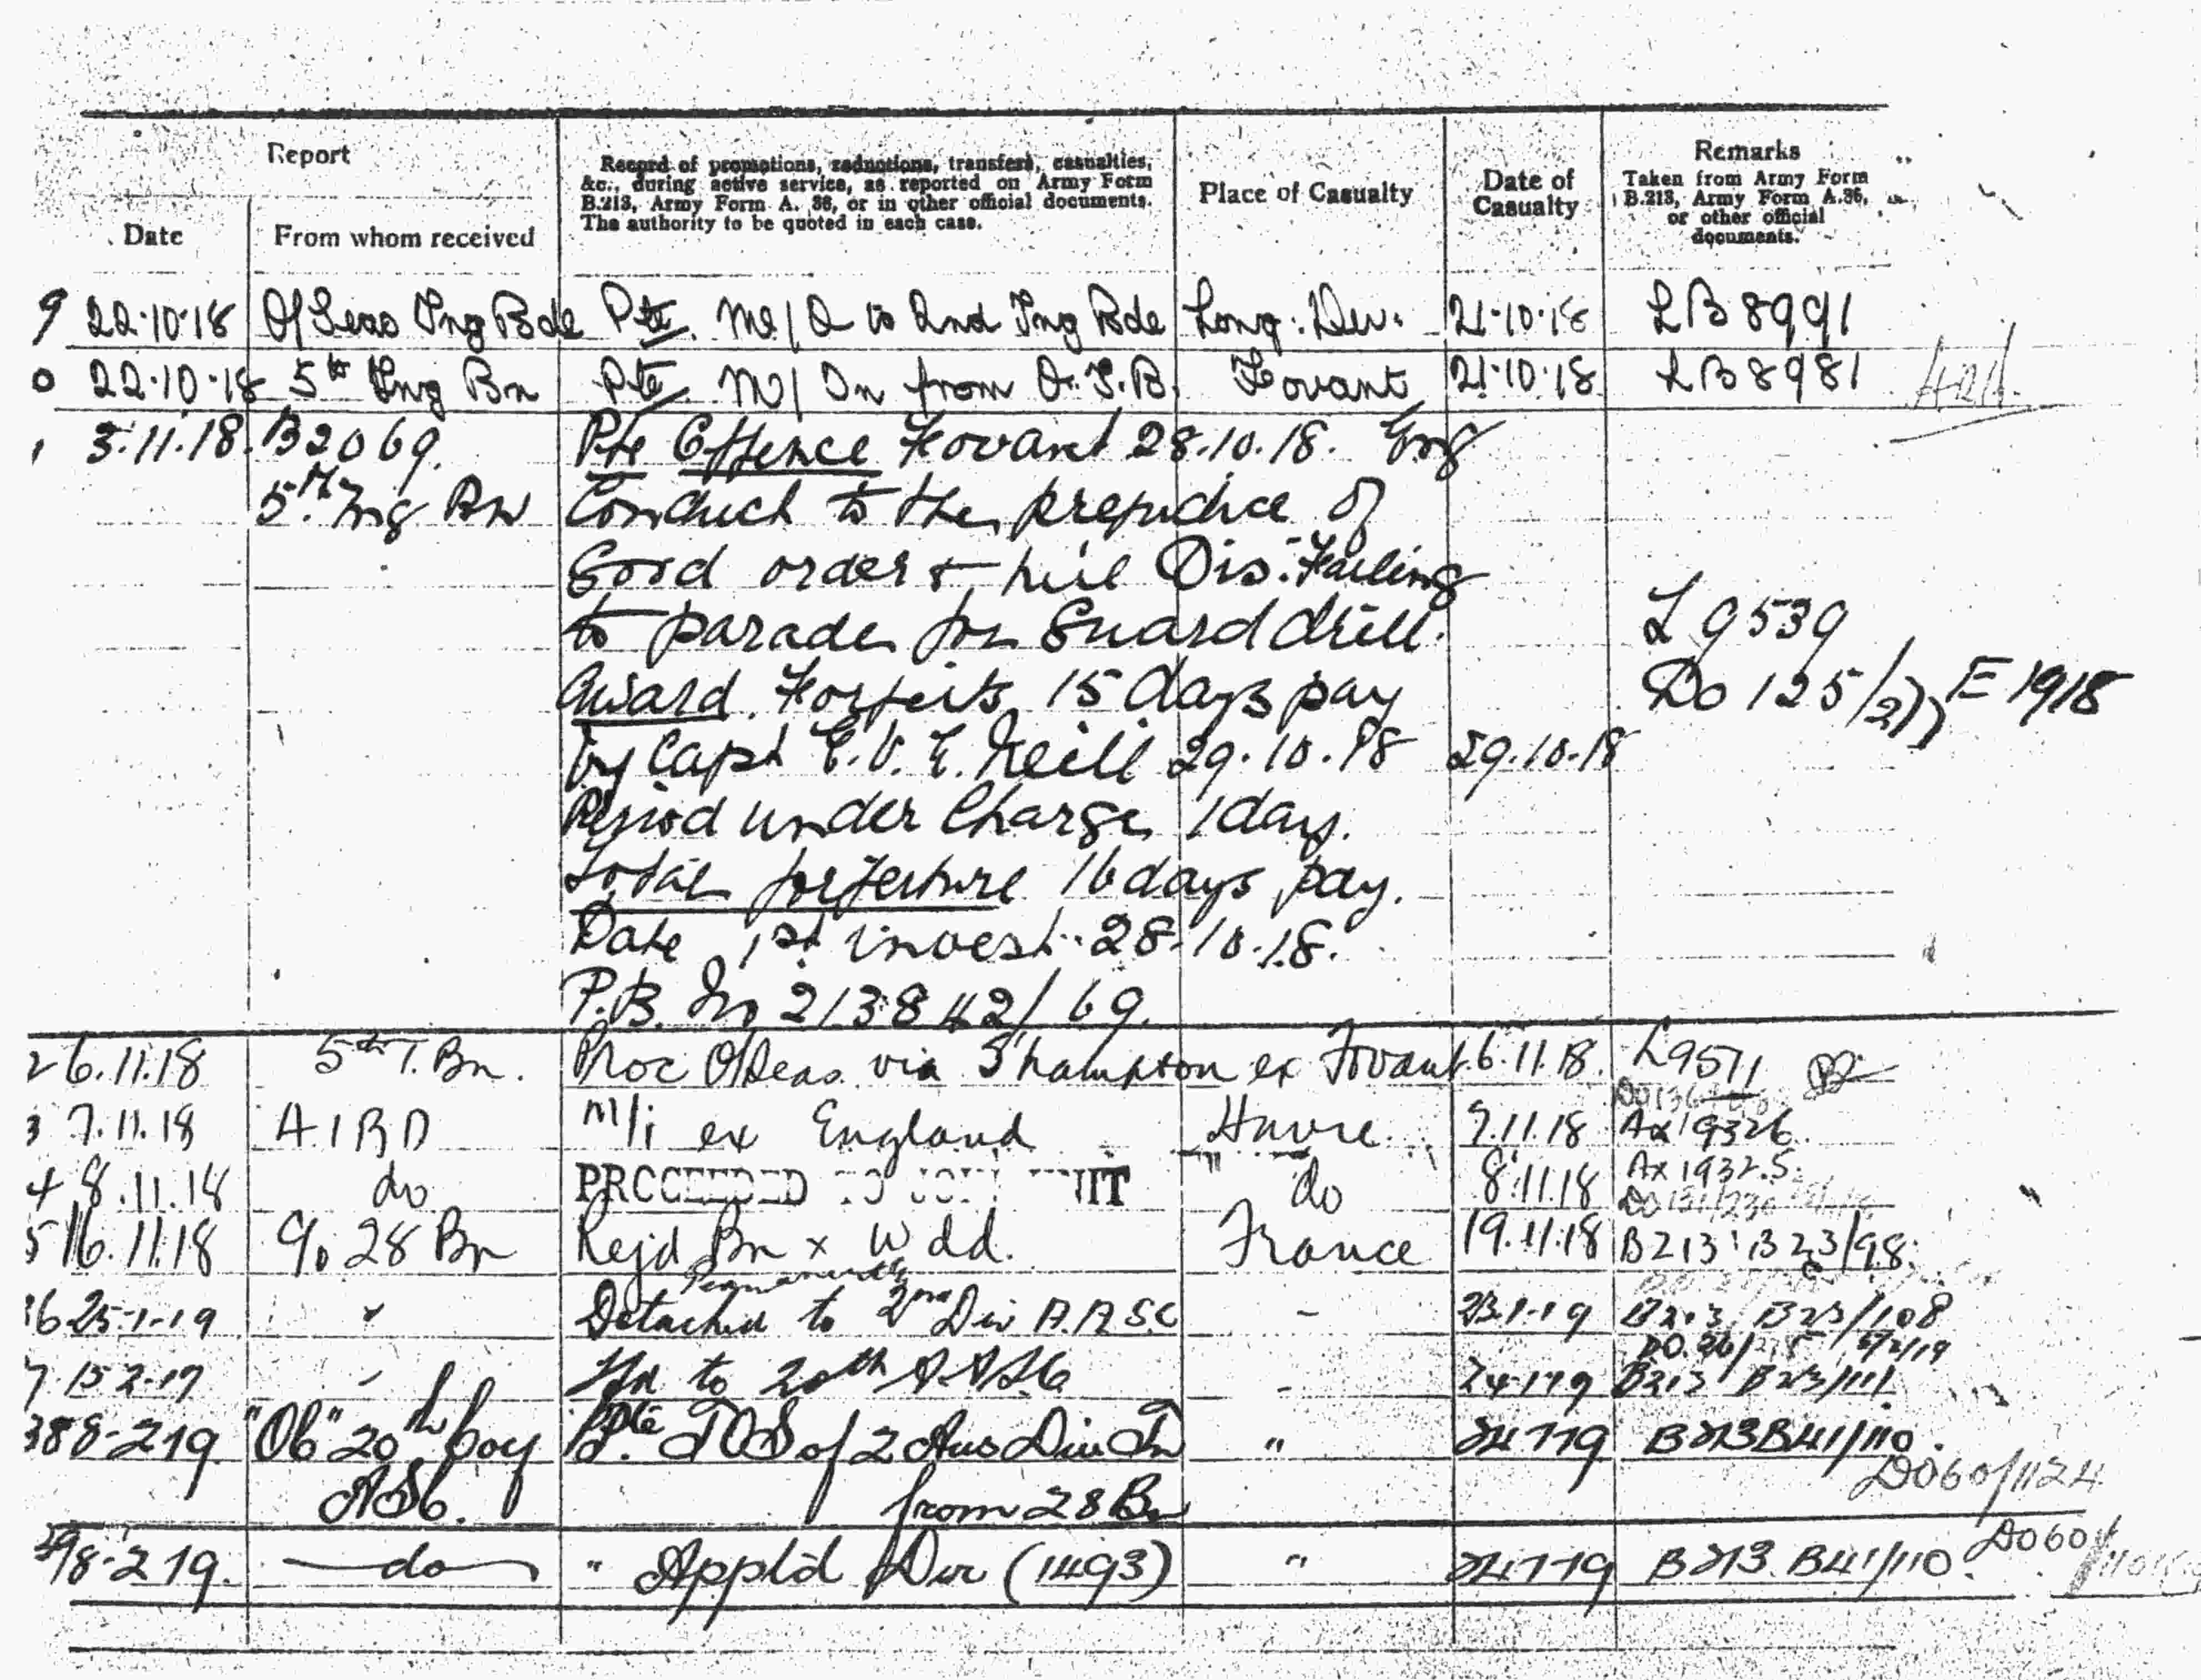 Report
Record of promotions, reductions, transfers, casualties,
&c., during active service, as reported on Army Form
B.213, Army Form A. 36, or in other official documents.
The authority to be quoted in each case.
Place of Casualty
Date of
Casualty
Remarks
Taken from Army Form
B.213, Army Form A.36,
or other official
documents.
Date
From whom received
9 22.10.18 O/Seas Trng Bde Pte. M/O to 2nd Trng Bde Long: Dev. 21.10.18 LB 8991
0 22.10.18 5th Trng Bn Pte. M/In from O.T.B. Fovant 21.10.18 LB 8981
1 3.11.18. B2069. Pte Offence Fovant 28.10.18. Eng
5th Trng Bn Conduct to the prejudice of
Good order & mil Dis: Failing
to parade for Guard drill.
L 9539
Award. Forfeits 15 days pay
Do 125/277 E 1918
by Capt E.V.E. Neill 29.10.18 29.10.18
Period under Charge 1 day.
Total forfeiture 16 days pay.
Date 1st invest. 28.10.18.
P.B. 213842/69.
2 6.11.18 5th T. Bn. Proc O/Seas via S'hampton ex Fovant 6.11.18. L9571
3 7.11.18 A I B D M/i ex England Havre 7.11.18 Ax 19326
4 8.11.18 do PROCEEDED TO JOIN UNIT do 8.11.18 Ax 19325
5 16.11.18 28 Bn Rejd Bn x Wdd. France 19.11.18 B213 B23/98
Permanently
6 25-1-19 " Detached to 2nd Div A.A.S.C - 23.1.19 B213 B23/108
7 15-2-19 " to 20th A.A.S.C - 24.1.19 B213 B23/111
8 8-2-19 "Ob" 20th Coy Pte TOS of 2 Aus Div Tn " 24.1.19 B213 B41/110.
DO60/1124
ASC. from 28 Bn
8-2-19. do " Appt'd Dvr (1493) " 24.1.19 B213. B41/110. DO60/